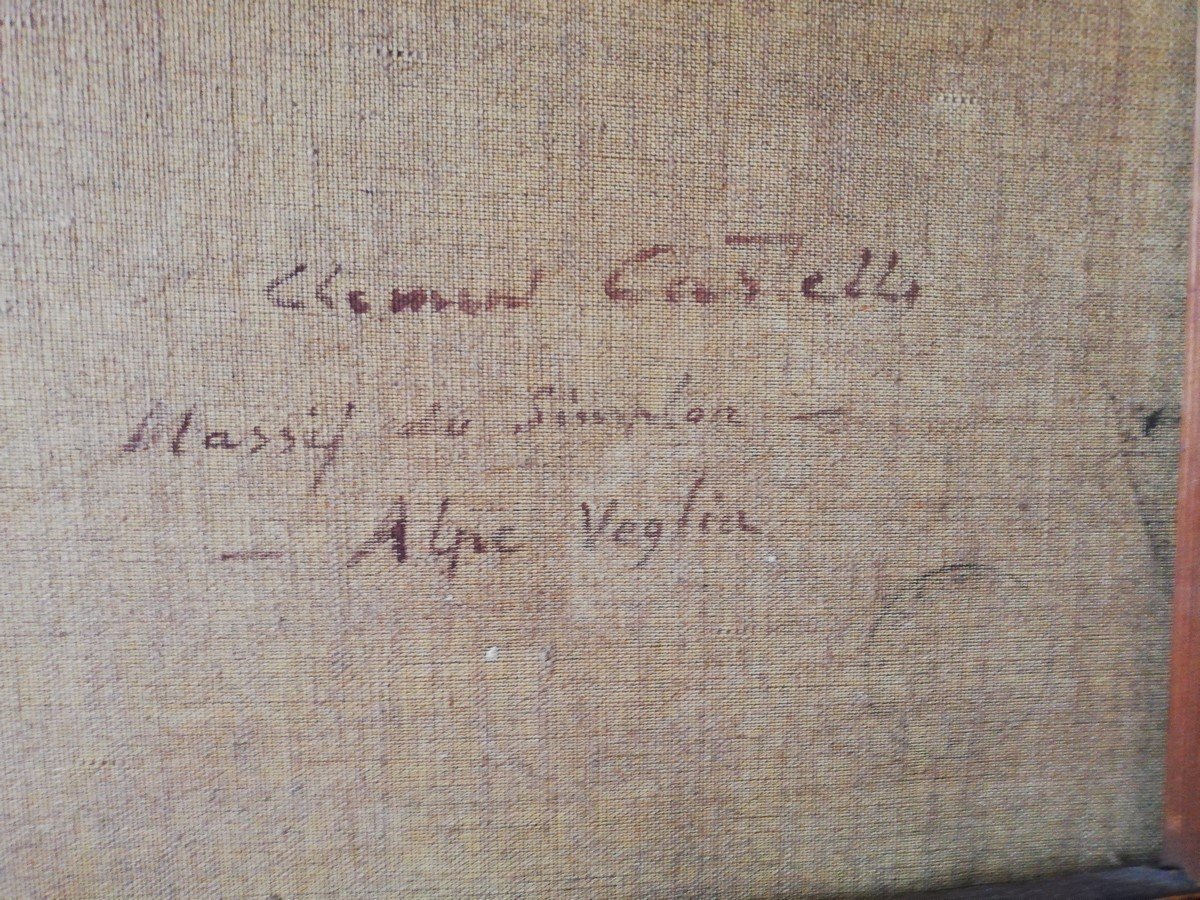 Clement Castelli
Massif du Simplon —
— Alpe Veglia